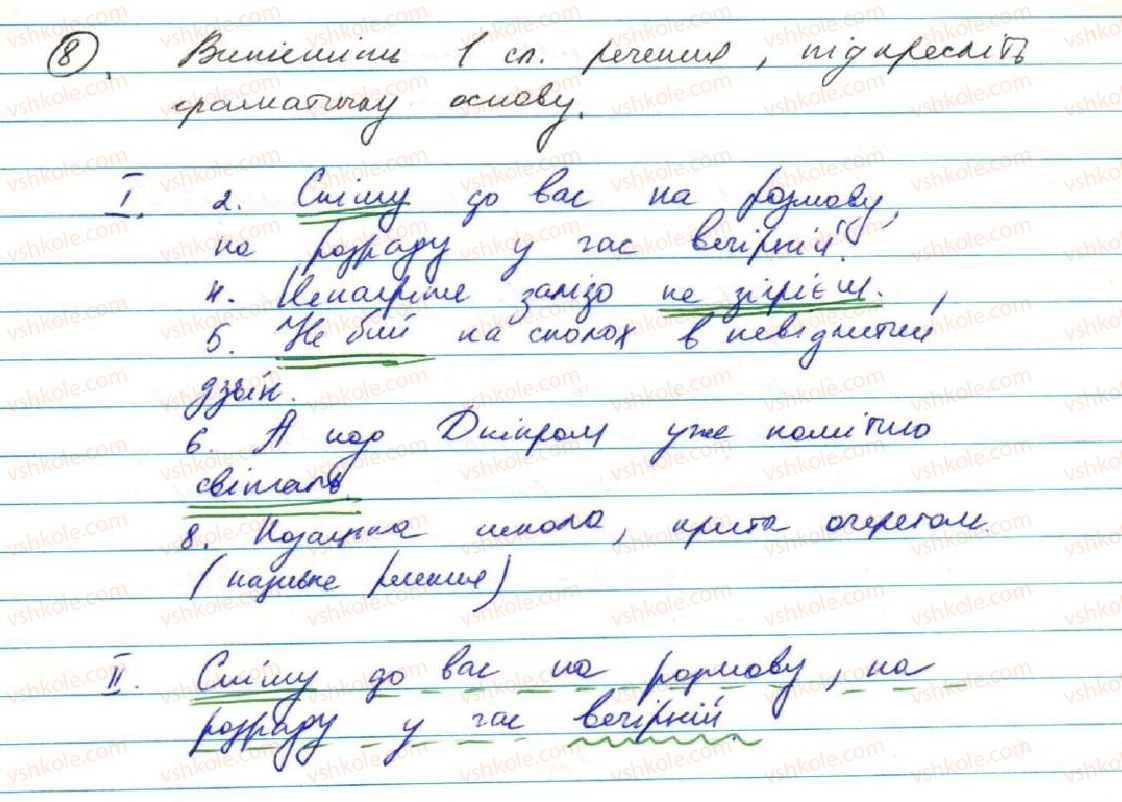 8. Випишіть 1 сп. речення, підкресліть
граматичну основу.
I. 2. Спішу до вас на розмову,
на розраду у час вечірній.
4. Ненагріте залізо не зігнієш.
5. Не бий на сполох в невідлитий
дзвін.
6. А над Дніпром уже помітно
світало.
8. Козацька школа, крита очеретом.
(називне речення)
II. Спішу до вас на розмову, на
розраду у час вечірній
vshkole.com